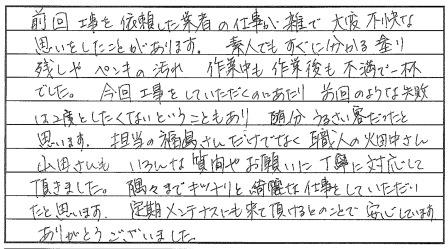 前回工事を依頼した業者の仕事が雑で大変不快な
思いをしたことがあります。素人でもすぐに分かる塗り
残しやペンキの汚れ 作業中も作業後も不満で一杯
でした。今回工事をしていただくのにあたり 前回のような失敗
は2度としたくないということもあり 随分うるさい客だったと
思います。担当の福島さんだけでなく職人の火田中さん
山田さんも いろんな質問やお願いに丁寧に対応して
頂きました。隅々までキッチリと綺麗な仕事をしていただい
たと思います。定期メンテナスにも来て頂けるとのことで安心しています
ありがとうございました。